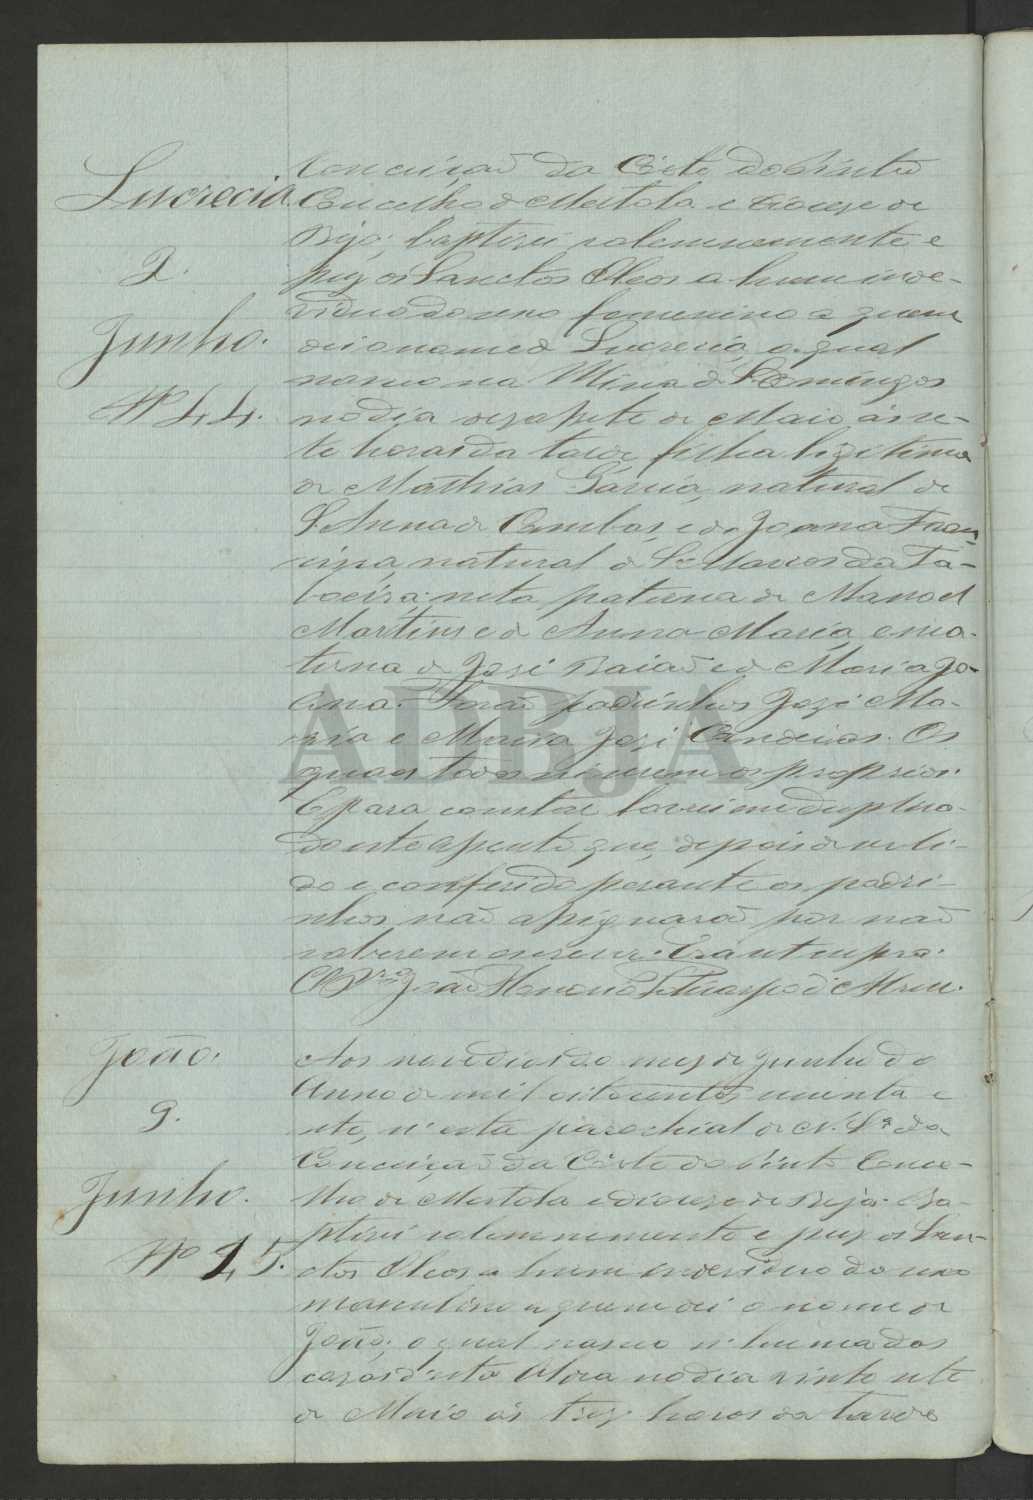 Lucrecia
2.
Junho.
Nº 44.
Conceiçaõ da Córte do Pinto
Concelho de Mertola e Diocese de
Beja: baptisei solemnemente e
puz os Sanctos Oleos a hum inde-
viduo do sexo femenino a quem
dei o nome de Lucrecia, a qual
nasceo na Mina de S. Domingos
no dia desasete de Maio ás se-
te horas da tarde filha legitima
de Mathias Garcia, natural de
S. Anna de Cambas, e de Joana Fran-
cisca, natural de S. Marcos da Ta-
boeira; neta paterna de Manoel
Martins e de Anna Maria, e ma-
terna de José Baiaõ e de Maria Jo-
ana. Foraõ padrinhos José Ma-
ria e Maria José Candeias. Os
quaes todos sei serem os proprios.
E para constar lavrei em duplica-
do este Assento que, depois de ser li-
do e conferido perante os padri-
nhos naõ assignaraõ por naõ
saberem escrever. Era ut supra.
O Pr. João
João.
9.
Junho.
Nº 45.
Aos nove dias do mez de Junho do
Anno de mil oitocentos
sete, n'esta parochial de N. Sª da
Conceiçaõ da Córte do Pinto Conce-
lho de Mertola e diocese de Beja: Ba-
ptisei solemnemente e puz os San-
ctos Oleos a hum individuo do sexo
masculino a quem dei o nome de
João; o qual nasceo n'huma das
casas d'esta Aldea no dia vinte sete
de Maio ás trez horas da tarde
ADBJA